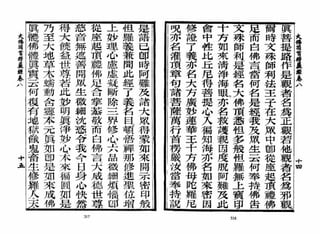 大佛頂首楞嚴經卷八
十四
眞菩提路作是觀者名爲正觀若他觀者名爲邪觀
爾時文殊師利法王子在大眾中卽從座起頂禮佛
足而白佛言當何名是經我及眾生云何奉持佛告
文殊師利是經名大佛頂悉怛多般怛羅無上寶印
十方如來淸淨海眼亦名救護親因度脫阿難及此
會中性比丘尼得菩提心入徧知海亦名如來密因
修證了義亦名大方廣妙蓮華王十方佛母陀羅尼
呪亦名灌頂章句諸菩薩萬行首楞嚴汝當奉持說
大佛頂首楞嚴經卷八
十五
是語已卽時阿難及諸大眾得蒙如來開示密印般
怛羅義兼聞此經了義名目頓悟禪那修進聖位增
上妙理心慮虛凝斷除三界修心六品微細煩惱卽
從座起頂禮佛足合掌恭敬而白佛言大威德世尊
慈音無遮善開眾生微細沈惑令我今日身心快然
得大饒益世尊若此妙明眞淨妙心本來徧圓如是
乃至大地草木蝡動含靈本元眞如卽是如來成佛
眞體佛體眞實云何復有地獄餓鬼畜生修羅人天
317
316